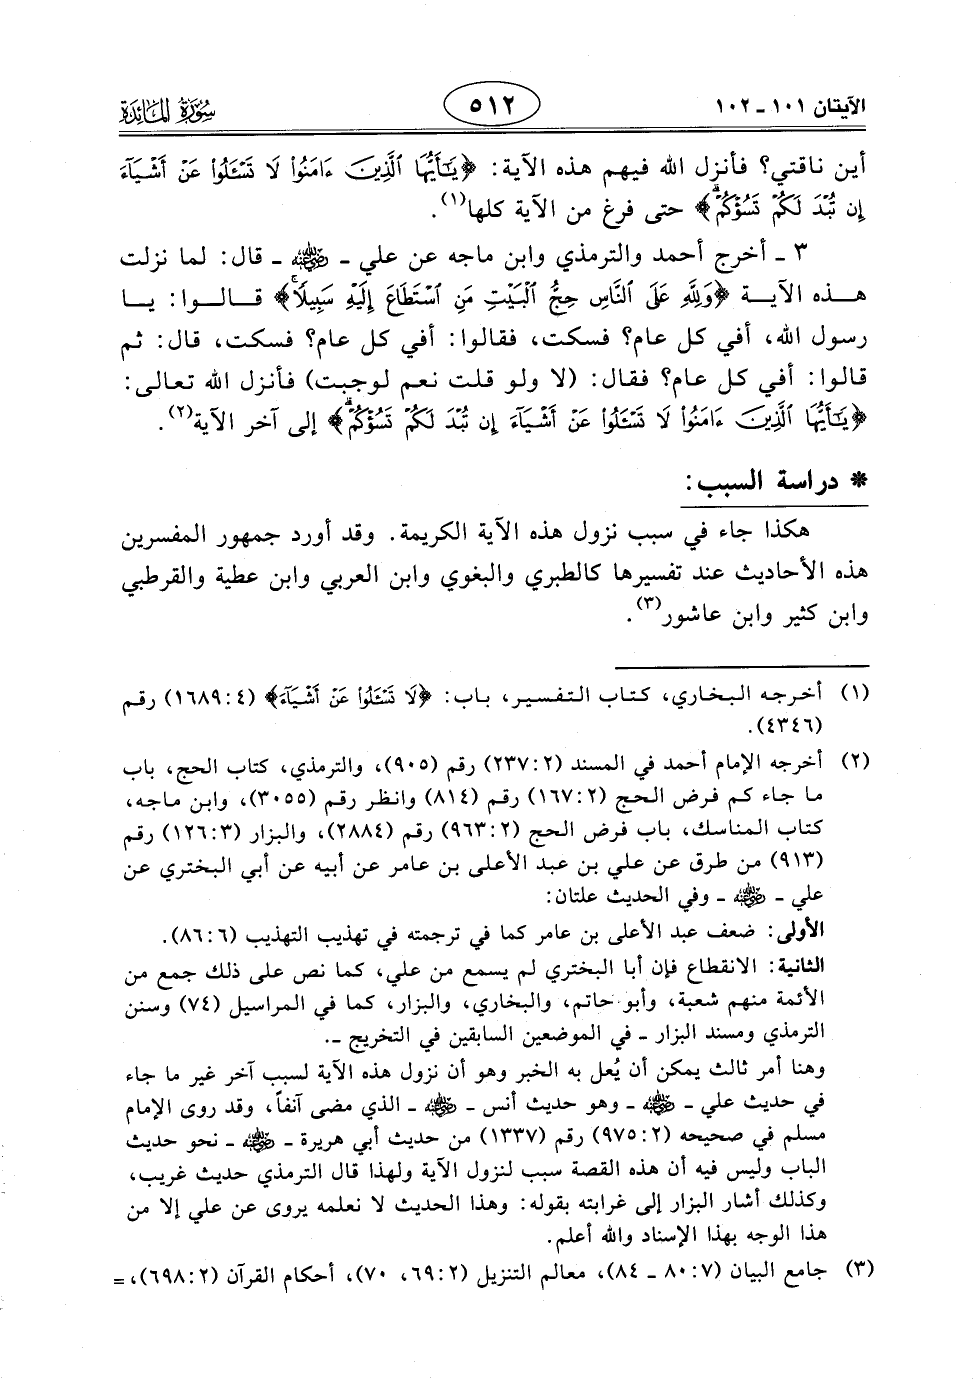 الآيتان ١٠١ ـ ١٠٢
٥١٢
سورة المائدة
أين ناقتي؟ فأنزل الله فيهم هذه الآية: ﴿يَٰٓأَيُّهَا ٱلَّذِينَ ءَامَنُواْ لَا تَسْـَٔلُواْ عَنْ أَشْيَآءَ
إِن تُبْدَ لَكُمْ تَسُؤْكُمْ﴾ حتى فرغ من الآية كلها(١).
٣ ـ أخرج أحمد والترمذي وابن ماجه عن علي ـ رضي الله عنه ـ قال: لما نزلت
هذه الآية ﴿وَلِلَّهِ عَلَى ٱلنَّاسِ حِجُّ ٱلْبَيْتِ مَنِ ٱسْتَطَاعَ إِلَيْهِ سَبِيلًا﴾ قالوا: يا
رسول الله، أفي كل عام؟ فسكت، فقالوا: أفي كل عام؟ فسكت، قال: ثم
قالوا: أفي كل عام؟ فقال: (لا ولو قلت نعم لوجبت) فأنزل الله تعالى:
﴿يَٰٓأَيُّهَا ٱلَّذِينَ ءَامَنُواْ لَا تَسْـَٔلُواْ عَنْ أَشْيَآءَ إِن تُبْدَ لَكُمْ تَسُؤْكُمْ﴾ إلى آخر الآية(٢).
* دراسة السبب:
هكذا جاء في سبب نزول هذه الآية الكريمة. وقد أورد جمهور المفسرين
هذه الأحاديث عند تفسيرها كالطبري والبغوي وابن العربي وابن عطية والقرطبي
وابن كثير وابن عاشور(٣).
(١) أخرجه البخاري، كتاب التفسير، باب: ﴿لَا تَسْـَٔلُواْ عَنْ أَشْيَآءَ﴾ (٤: ١٦٨٩) رقم
(٤٣٤٦).
(٢) أخرجه الإمام أحمد في المسند (٢: ٢٣٧) رقم (٩٠٥)، والترمذي، كتاب الحج، باب
ما جاء كم فرض الحج (٢: ١٦٧) رقم (٨١٤) وانظر رقم (٣٠٥٥)، وابن ماجه،
كتاب المناسك، باب فرض الحج (٢: ٩٦٣) رقم (٢٨٨٤)، والبزار (٣: ١٢٦) رقم
(٩١٣) من طرق عن علي بن عبد الأعلى بن عامر عن أبيه عن أبي البختري عن
علي ـ رضي الله عنه ـ وفي الحديث علتان:
الأولى: ضعف عبد الأعلى بن عامر كما في ترجمته في تهذيب التهذيب (٦: ٨٦).
الثانية: الانقطاع فإن أبا البختري لم يسمع من علي، كما نص على ذلك جمع من
الأئمة منهم شعبة، وأبو حاتم، والبخاري، والبزار، كما في المراسيل (٧٤) وسنن
الترمذي ومسند البزار ـ في الموضعين السابقين في التخريج ـ.
وهنا أمر ثالث يمكن أن يُعل به الخبر وهو أن نزول هذه الآية لسبب آخر غير ما جاء
في حديث علي ـ رضي الله عنه ـ وهو حديث أنس ـ رضي الله عنه ـ الذي مضى آنفاً، وقد روى الإمام
مسلم في صحيحه (٢: ٩٧٥) رقم (١٣٣٧) من حديث أبي هريرة ـ رضي الله عنه ـ نحو حديث
الباب وليس فيه أن هذه القصة سبب لنزول الآية ولهذا قال الترمذي حديث غريب،
وكذلك أشار البزار إلى غرابته بقوله: وهذا الحديث لا نعلمه يروى عن علي إلا من
هذا الوجه بهذا الإسناد والله أعلم.
(٣) جامع البيان (٧: ٨٠ ـ ٨٤)، معالم التنزيل (٢: ٦٩، ٧٠)، أحكام القرآن (٢: ٦٩٨)، =